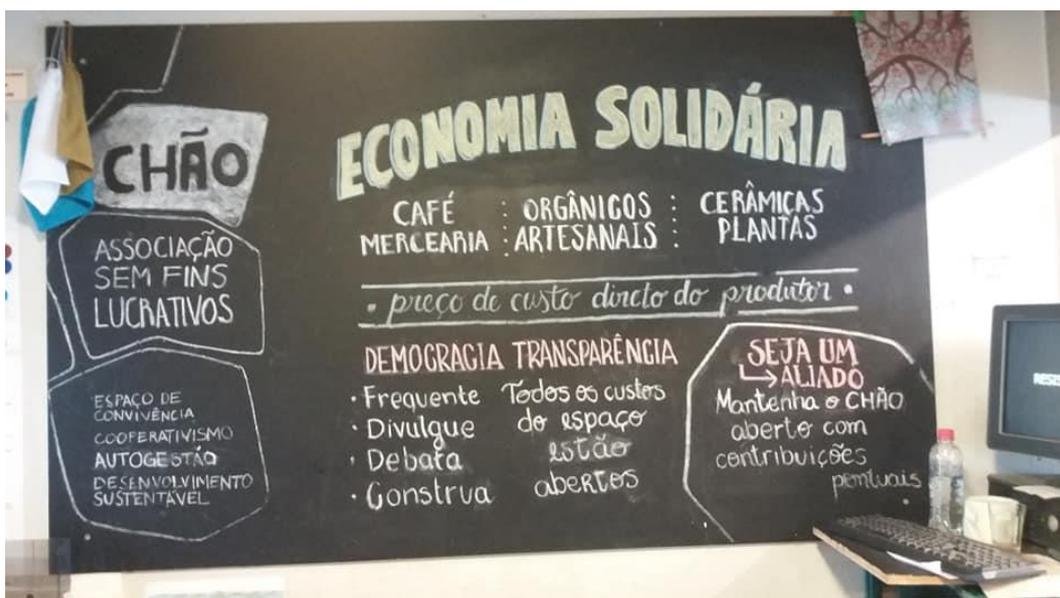 CHÃO
ASSOCIAÇÃO
SEM FINS
LUCRATIVOS
ESPAÇO DE
CONVIVÊNCIA
COOPERATIVISMO
AUTOGESTÃO
DESENVOLVIMENTO
SUSTENTÁVEL
ECONOMIA SOLIDÁRIA
CAFÉ : ORGÂNICOS : CERÂMICAS
MERCEARIA : ARTESANAIS : PLANTAS
• preço de custo direto do produtor •
DEMOCRACIA
• Frequente
• Divulgue
• Debata
• Construa
TRANSPARÊNCIA
Todos os custos
do espaço
estão
abertos
SEJA UM
ALIADO
Mantenha o CHÃO
aberto com
contribuições
pontuais